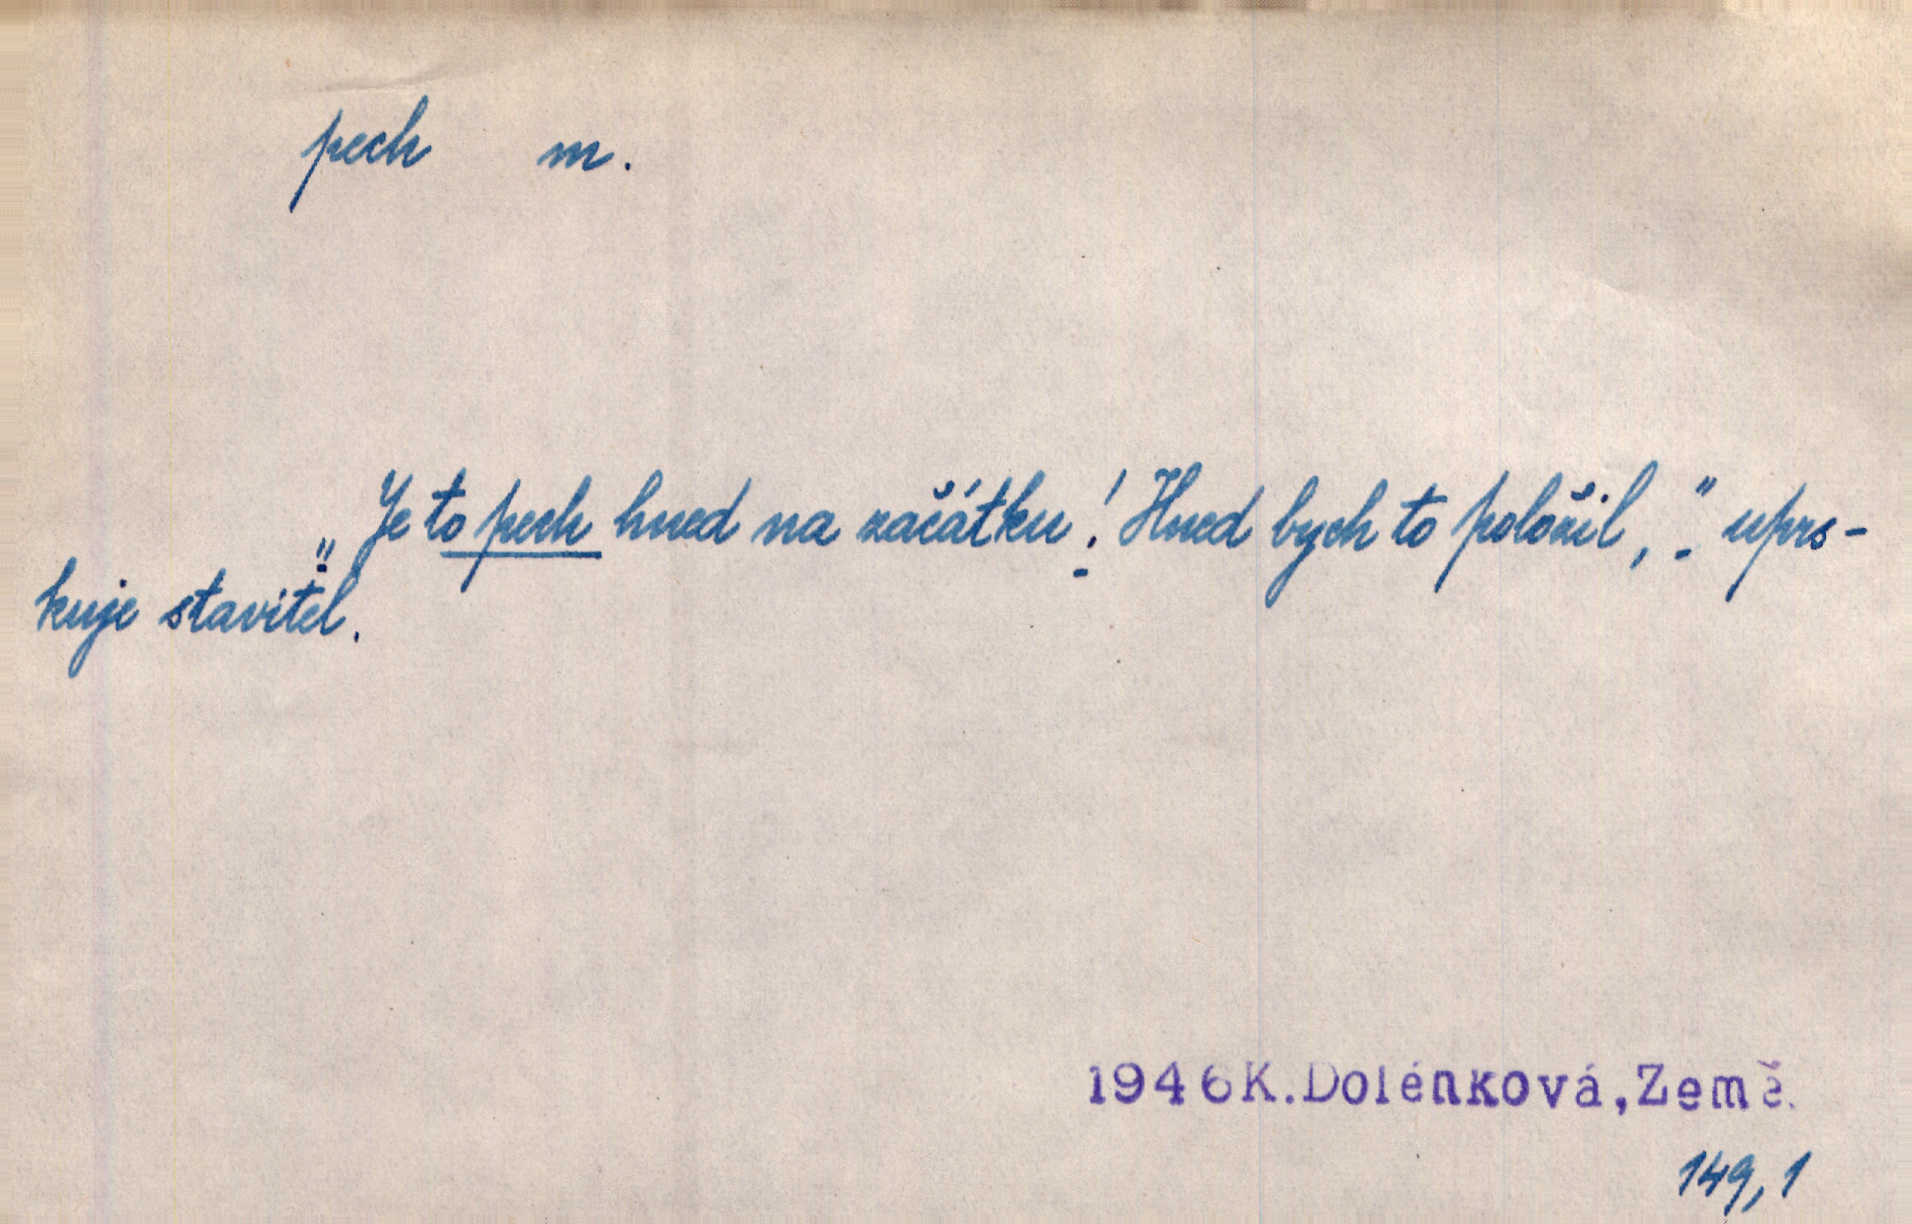 pech m.
„Je to pech hned na začátku! Hned bych to položil,“ uprs-
kuje stavitel.
1946 K. Dolénková, Země.
149, 1